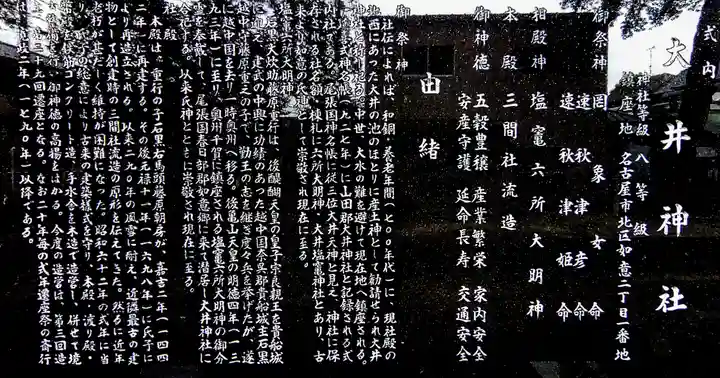 式内
大井神社
神社等級 八等級
鎮座地 名古屋市北区如意二丁目一番地
御祭神 罔象女命
速秋津彦命
速秋津姫命
相殿神 塩竈六所大明神
本殿 三間社流造
御神徳 五穀豊穣 産業繁栄 家内安全
安産守護 延命長寿 交通安全
由緒
御祭神
社伝によれば、和銅・養老年間(七〇〇年代)に、現社殿の
北西にあった大井の池のほとりに産土神として勧請せられ大井
神社と称し祀る。中世、大水の難を避けて現在地へ鎮座される。
式神名帳(九二七年)に山田郡大井神社と記録される式
内社である。尾張国神名帳に従三位大井天神と見え、神社に保
存される社名額、棟札に六所大明神、大井塩竈神社とあり、古
来より如意の氏神として崇敬され現在に至る。
塩竈六所大明神
石黒大炊助藤原重行は、後醍醐天皇の皇子宗良親王を貴船城
に迎え、建武の中興に功績のあった越中国奈呉郡貴船城主石黒
越中守藤原重之の子で、勤王の志を継ぎ度々兵を挙げたが、遂
に越中国を去り一時奥州へ移る。後亀山天皇の明徳四年(一三
九三年)に至り、奥州千賀に鎮座される塩竈六所大明神の御分
霊を奉載して、尾張国春日部郡如意郷に来て潜居し、大井神社に
合祀する。以来氏神とともに崇敬され現在に至る。
社殿
本殿は、重行の子石黒右馬頭藤原朝房が、嘉吉二年(一四四
二年)に再建する。その後元禄十一年(一六九八年)に氏子に
より再造立される。以来二九〇年の風雪に耐え、近隣最古の建
物として創建時の三間社流造の原形を伝えてきた。然るに近年
老朽が甚だしく維持が困難になった。昭和六十二年の式年に当
り、氏子の総意により古来の建築様式を守り、本殿・渡り殿・
を鉄筋コンクリート造、手水舎を木造で造営し、併せて境
を行い御神徳の高揚をはかる。今度の造営は、第三回造
二十九回遷座となる。なお二十年毎の式年遷座祭の斎行
二年(一七九〇年)以降である。